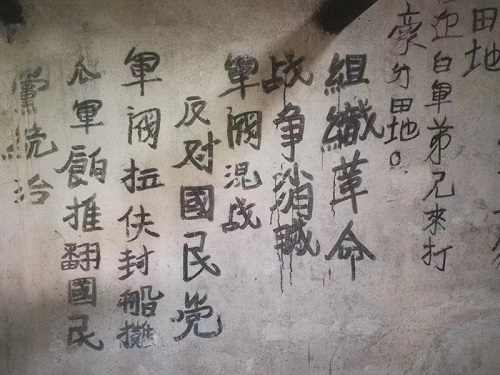 田地
迎白軍弟兄來打
豪分田地。
組織革命
战争消滅
軍閥混战
反对國民党
軍閥拉伕封船攤
軍餉推翻國民
黨統治